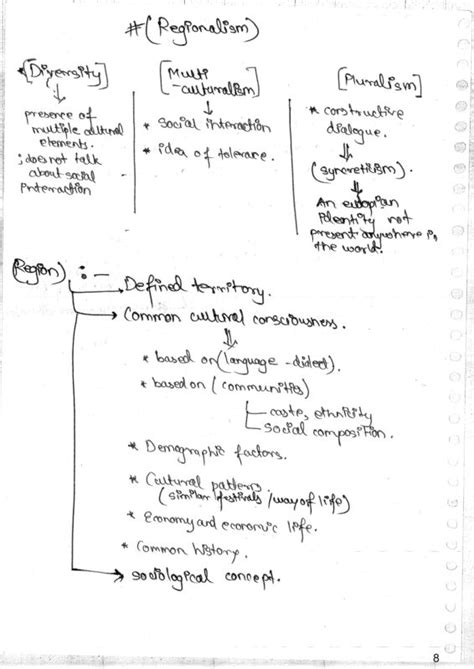 # (Regionalism)
* [Diversity]
presence of
multiple cultural
elements.
; does not talk
about social
Interaction
[Multi
-culturalism]
* Social interaction
* idea of tolerance.
[Pluralism]
* constructive
dialogue.
(syncretism).
An
identity not
present anywhere in
the world.
(Region) : -
Defined territory.
Common cultural consciousness.
* based on (language - dialect).
* based on (communities)
caste, ethnitity
social composition.
* Demographic factors.
* Cultural pattern
(similar festivals / way of life)
* Economy and economic life.
* Common history.
sociological concept.
8